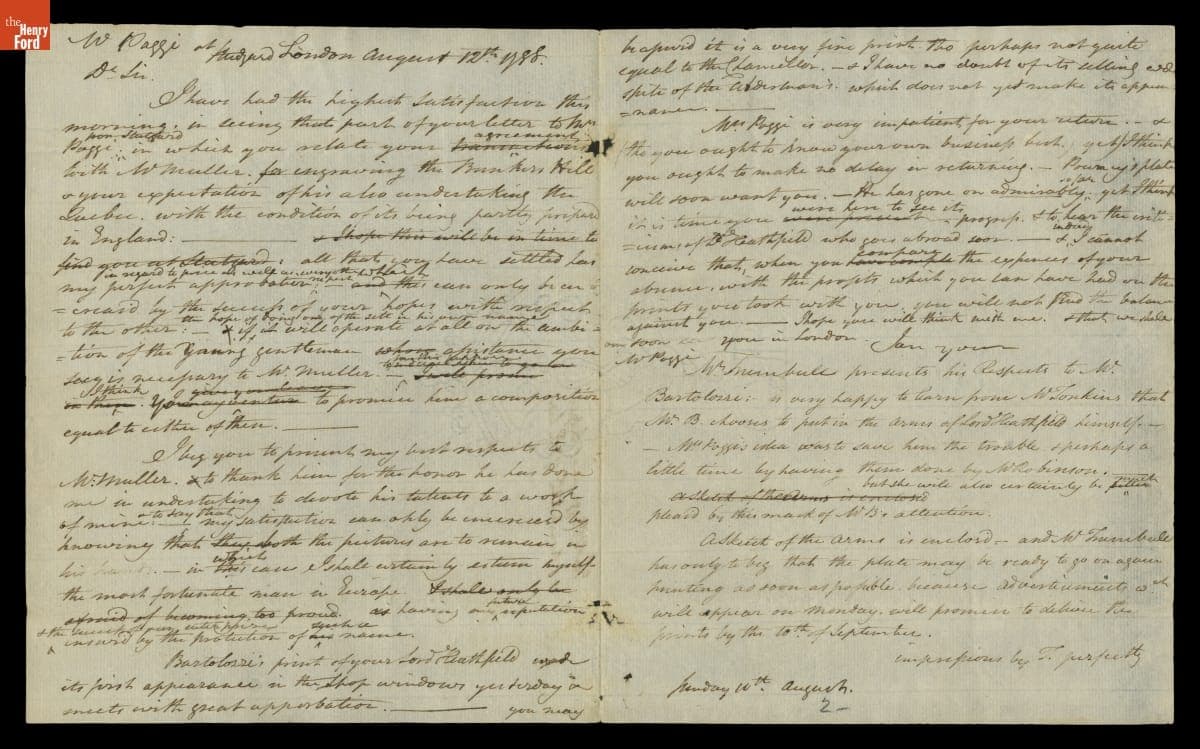 the
Henry
Ford
Mr Poggi at Stutgard London August 12th 1788.
Dr Sir.
I have had the highest satisfaction this
morning in seeing that part of your letter to Mrs
from Stutgard agreement
Poggi in which you relate your transactions
with Mr Muller. for engraving the Bunkers Hill
& your expectation of his also undertaking the
Quebec. with the condition of its being partly prepared
in England: & I hope this will be in time to
find you at Stutgard: all that you have settled has
in regard to price as well as everything
my perfect approbation and this can only be in
=creased by the success of your hopes with respect
the hope of being one of the sett in his own name
to the other: if it will operate at all on the ambi=
=tion of the Young gentleman whose assistance you
say is necessary to Mr Muller.
I think give you leave
You may venture to promise him a composition
equal to either of them.
I beg you to present my best respects to
Mr Muller. & to thank him for the honor he has done
me in undertaking to devote his talents to a work
to say that
of mine. my satisfaction can only be increased by
knowing that they both the pictures are to remain in
which
his hands. – in this case I shall certainly esteem myself
the most fortunate man in Europe. I shall only be
afraid of becoming too proud as having my future reputation
& the success of your enterprise such a
insured by the protection of his name.
Bartolozzi's print of your Lord Heathfield made
its first appearance in the shop windows yesterday &
meets with great approbation. you may
be assur'd it is a very fine print. tho perhaps not quite
equal to the Chancellor. – & I have no doubt of its selling
spite of the Alderman's. which does not yet make its appea
=rance.
Mrs Poggi is very impatient for your return. – &
tho you ought to know your own business best, yet I think
you ought to make no delay in returning. – Pouncy's plate
so far
will soon want you. – He has gone on admirably, yet I think
were here to see its
it is time you were present progress. & to hear the crit=
=icisms of Ld Heathfield who goes abroad soon. – & I cannot
compare
conceive that, when you have the expences of your
absence, with the profits which you can have had on the
prints you took with you, you will not find the balance
against you. – I hope you will think with me. & that we shall
soon see you in London. I am your
Mr Poggi
Mr Trumbull presents his Respects to Mr
Bartolozzi: – is very happy to learn from Mr Tomkins that
Mr B. chooses to put in the arms of Lord Heathfield himself –
– Mrs Poggi's idea was to save him the trouble & perhaps a
little time by having them done by Mr Robinson.
but she will also certainly be much
a sketch of the arms is enclosd
pleas'd by this mark of Mr B's attention.
A Sketch of the arms is enclosd – and Mr Trumbull
has only to beg that the plate may be ready to go on again
printing as soon as possible. because advertisements wch
will appear on monday, will promise to deliver the
prints by the 10th of September.
impressions by T. perfectly
Sunday 10th August.
2 –